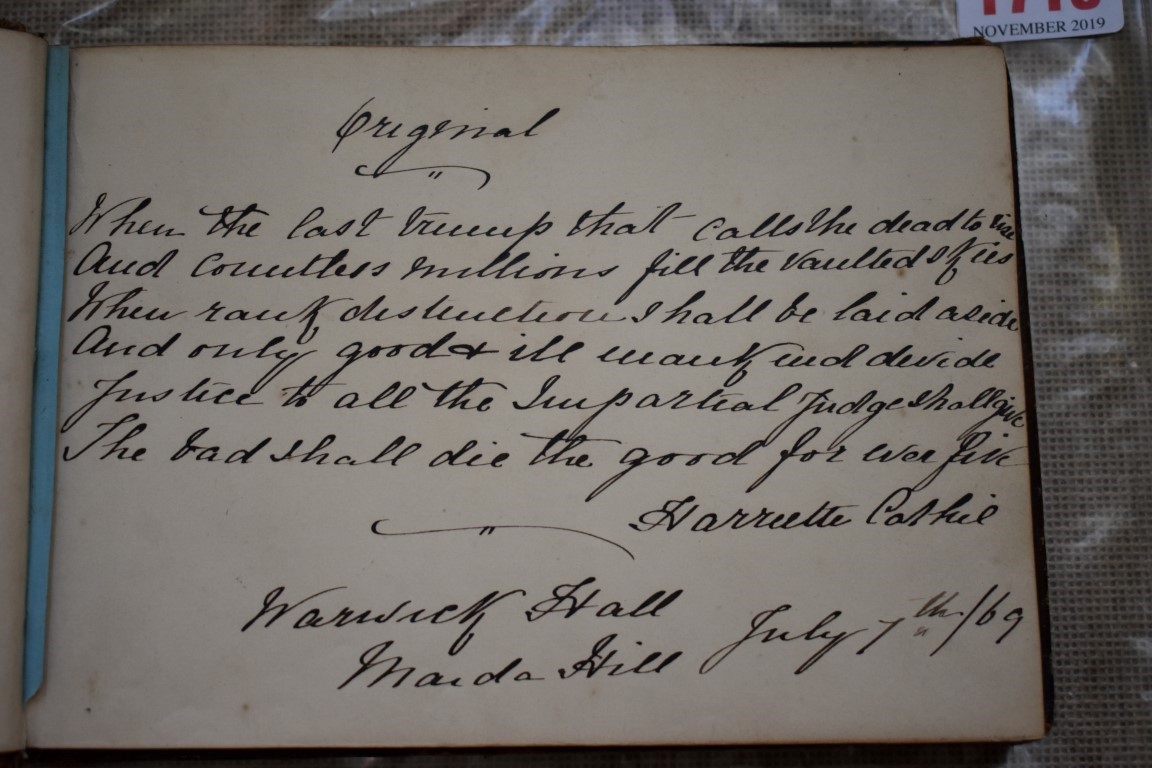 1710
NOVEMBER 2019
Original
When the last trump that calls the dead to rise
And countless millions fill the vaulted skies
When rank destruction shall be laid aside
And only good & ill mankind divide
Justice to all the Impartial Judge shall give
The bad shall die the good for ever live
Harriette Cathie
Warwick Hall
Maida Hill
July 7th/69